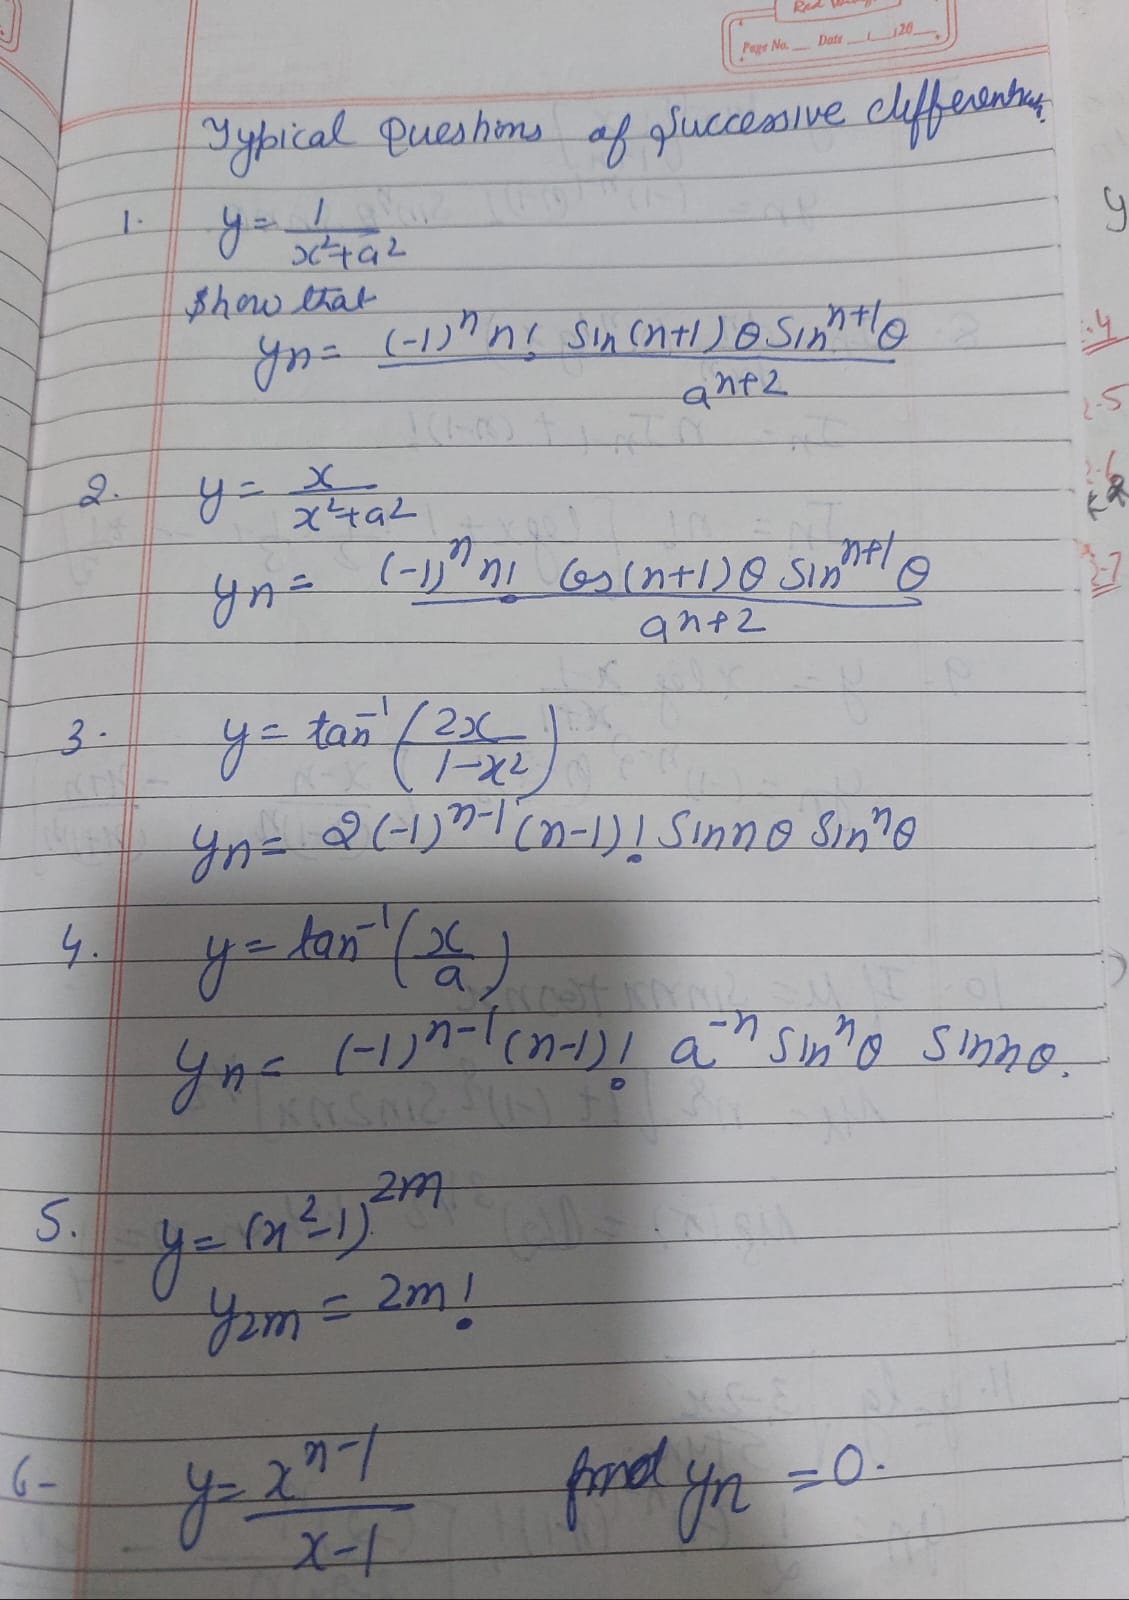 Page No. __ Date __/__/20__
Typical Questions of Successive differentn.
1. y = 1/(x²+a²)
Show that
yn = (-1)ⁿ n! Sin(n+1)θ Sinⁿ⁺¹θ / aⁿ⁺²
2. y = x/(x²+a²)
yn = (-1)ⁿ n! Cos(n+1)θ Sinⁿ⁺¹θ / aⁿ⁺²
3. y = tan⁻¹(2x/(1-x²))
yn = 2(-1)ⁿ⁻¹(n-1)! Sin nθ Sinⁿθ
4. y = tan⁻¹(x/a)
yn = (-1)ⁿ⁻¹(n-1)! a⁻ⁿ Sinⁿθ Sin nθ.
5. y = (x²-1)²ᵐ
y₂ₘ = 2m!
6- y = xⁿ⁻¹/(x-1) find yn = 0.